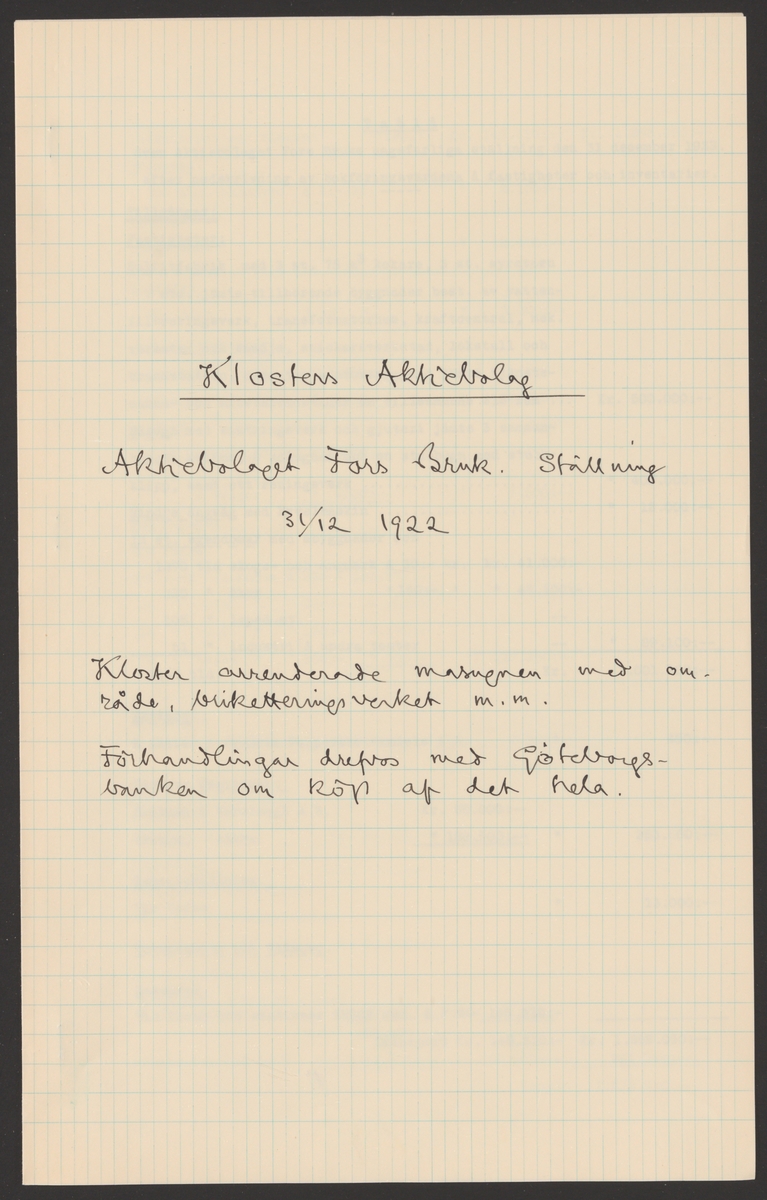 Klosters Aktiebolag
Aktiebolaget Fors Bruk. Ställning
31/12 1922
Kloster arrenderade masugnen med om-
råde, briketteringsverket m.m.
Förhandlingar drefvos med Göteborgs-
banken om köp af det hela.